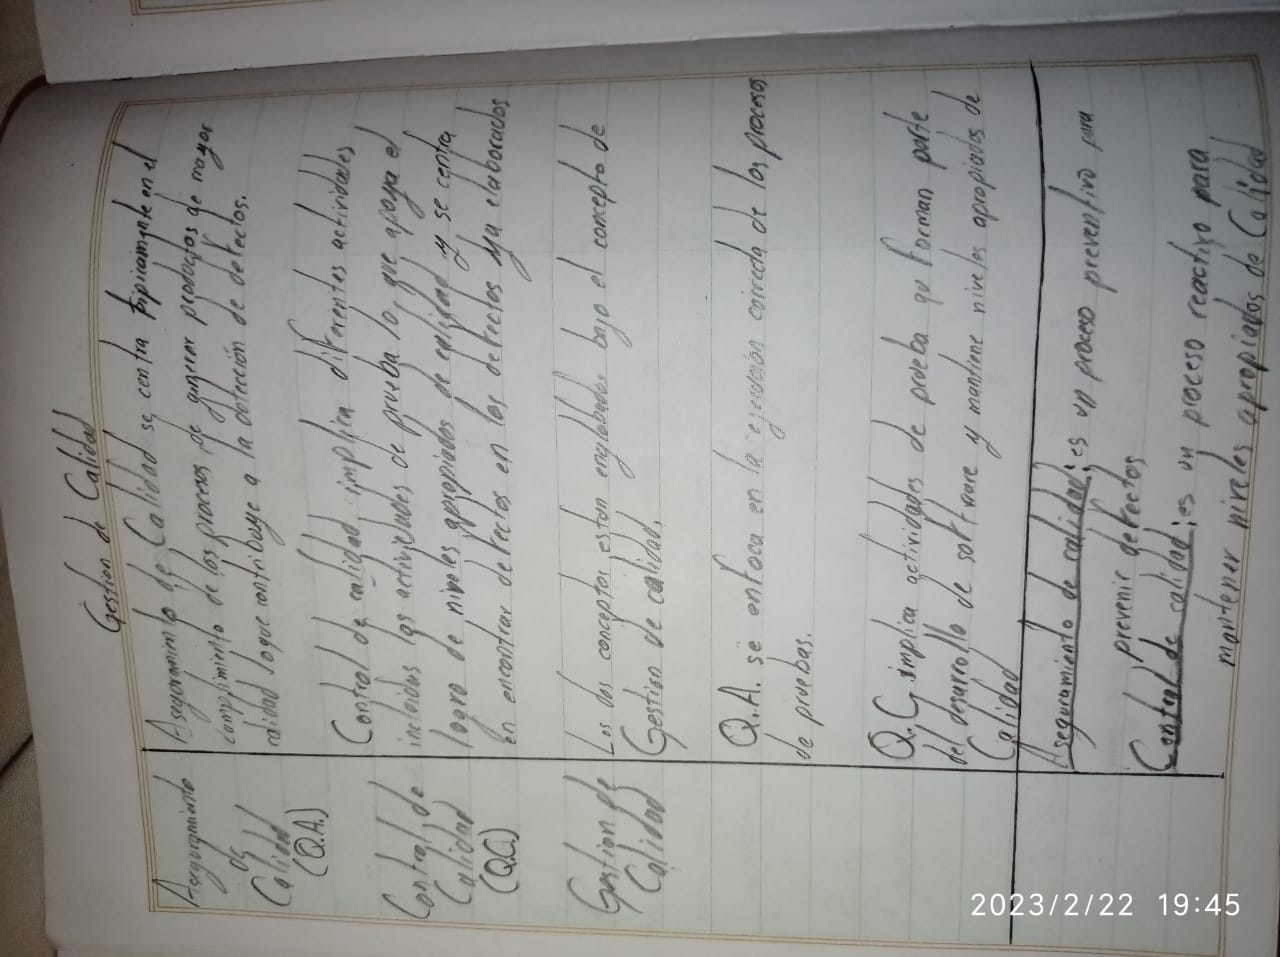 Gestion de Calidad
Aseguramiento
de
Calidad
(Q.A.)
Aseguramiento de Calidad se centra tipicamente en el
cumplimiento de los procesos de generar productos de mayor
calidad loque contribuye a la detección de defectos.
Control de
Calidad
(Q.C.)
Control de calidad implica diferentes actividades
incluidas las actividades de prueba lo que apoya el
logro de niveles apropiados de calidad y se centra
en encontrar defectos en los defectos ya elaborados
Gestion de
Calidad
Los dos conceptos estan englobados bajo el concepto de
Gestion de calidad.
Q.A. se enfoca en la ejecución correcta de los procesos
de pruebas.
Q.C implica actividades de prueba qu forman parte
del desarrollo de software y mantiene niveles apropiados de
Calidad
Aseguramiento de calidad: es un proceso preventivo para
prevenir defectos
Control de calidad: es un proceso reactivo para
mantener niveles apropiados de Calidad
2023/2/22 19:45